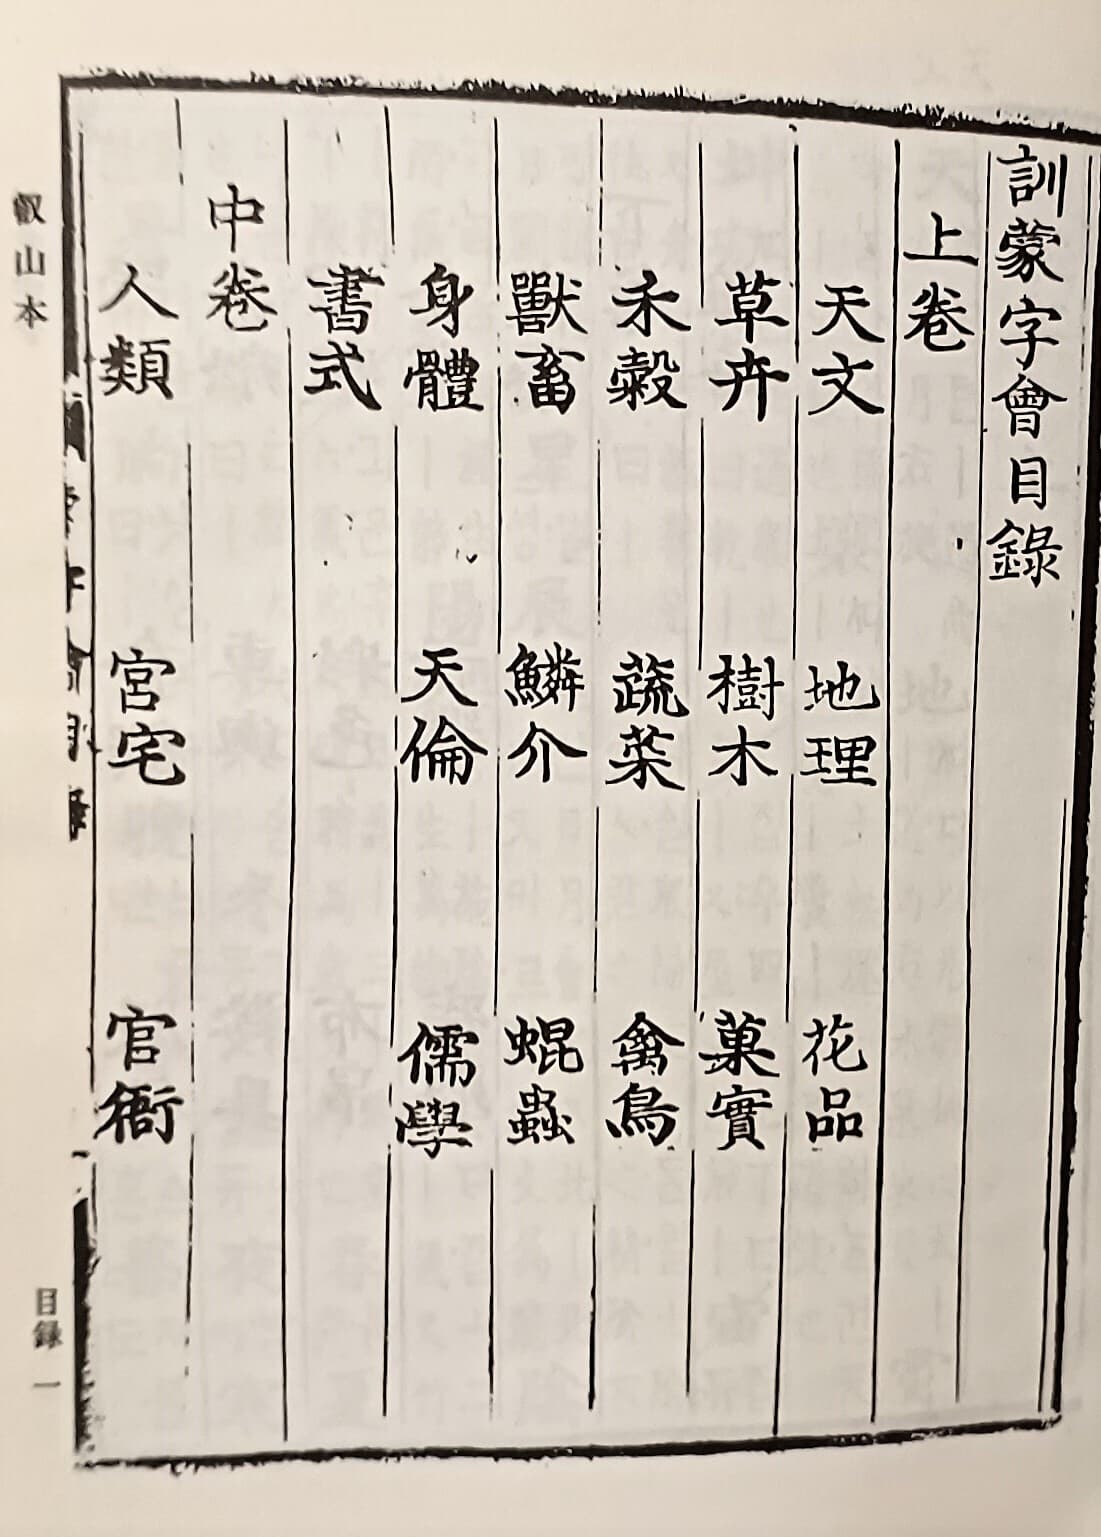 訓蒙字會目錄
上卷
天文 地理 花品
草卉 樹木 菓實
禾穀 蔬菜 禽鳥
獸畜 鱗介 蜫蟲
身體 天倫 儒學
書式
中卷
人類 宮宅 官衙
叡山本
目錄 一